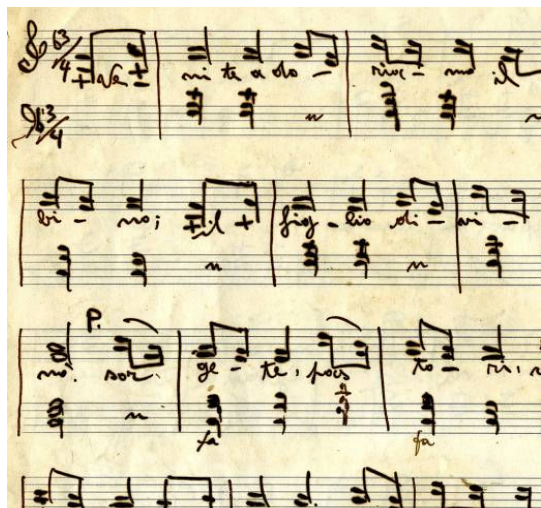 3/4 Ve- ni te a do- rioc- mo il
3/4
bi- no; il fig- lio di- vi-
P.
no. sor- ge- te, pas to- ri,
fa fa